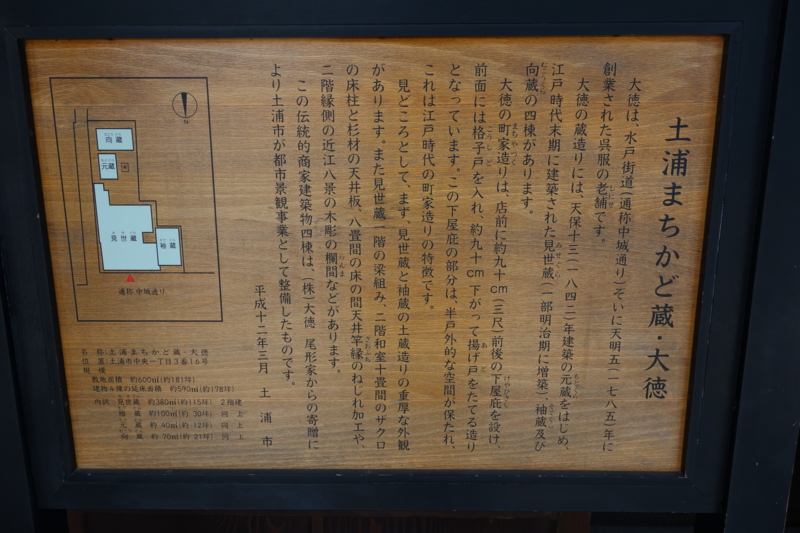 土浦まちかど蔵・大徳
大徳は、水戸街道(通称中城通り)ぞいに天明五(一七八五)年に
創業された呉服の老舗です。
大徳の蔵造りには、天保十三(一八四二)年建築の元蔵をはじめ、
江戸時代末期に建築された見世蔵(一部明治期に増築)、袖蔵及び
向蔵の四棟があります。
大徳の町家造りは、店前に約九十cm(三尺)前後の下屋庇を設け、
前面には格子戸を入れ、約九十cm下がって揚げ戸をたてる造り
となっています。この下屋庇の部分は、半戸外的な空間が保たれ、
これは江戸時代の町家造りの特徴です。
見どころとして、まず、見世蔵と袖蔵の土蔵造りの重厚な外観
があります。また見世蔵一階の梁組み、二階和室十畳間のザクロ
の床柱と杉材の天井板、八畳間の床の間天井竿縁のねじれ加工や、
二階縁側の近江八景の木彫の欄間などがあります。
この伝統的商家建築物四棟は、(株)大徳 尾形家からの寄贈に
より土浦市が都市景観事業として整備したものです。
平成十二年三月 土浦市
N
向蔵
元蔵
見世蔵
袖蔵
通称 中城通り
名 称:土浦まちかど蔵・大徳
位 置:土浦市中央一丁目3番16号
規 模
敷地面積 約600㎡(約181坪)
建物4棟の延床面積 約590㎡(約178坪)
内訳 見世蔵 約380㎡(約115坪) 2階建
袖 蔵 約100㎡(約 30坪) 同 上
元 蔵 約 40㎡(約 12坪) 同 上
向 蔵 約 70㎡(約 21坪) 同 上